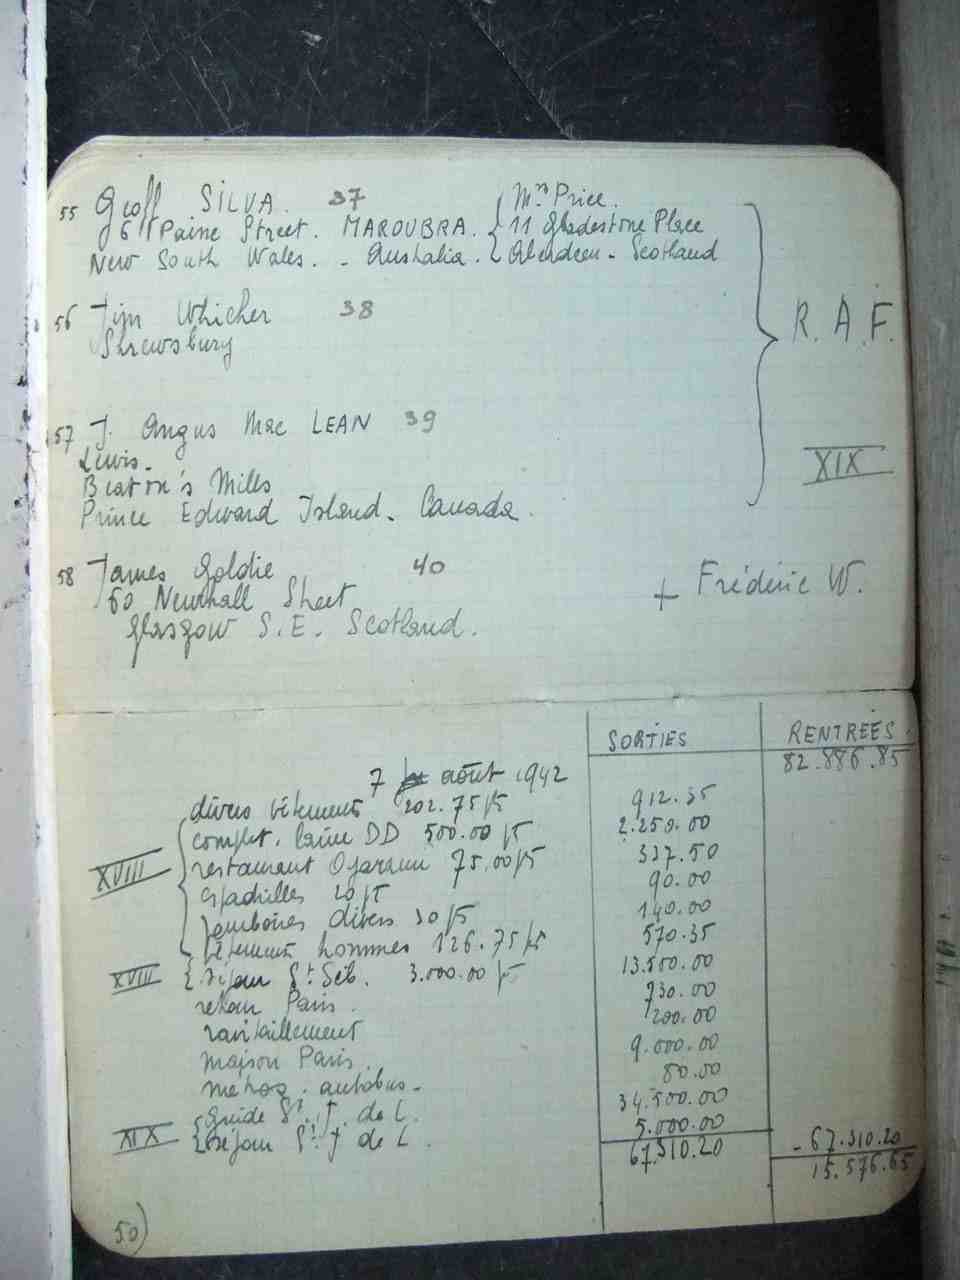 55 Geoff SILVA. 37 { Mrs Price.
6 Paine Street. MAROUBRA. { 11 Gladestone Place
New South Wales. - Australia. { Aberdeen - Scotland
56 Jim Whicher 38
Shrewsbury
R. A. F.
57 J. Angus Mac LEAN 39
Lewis.
Beaton's Mills
XIX
Prince Edward Island. Canada.
58 James Goldie 40
60 Newhall Street
+ Frédéric W.
Glasgow S.E. Scotland.
SORTIES RENTRÉES.
82.886.85
7 août 1942
divers vêtements 202.75 pts 912.35
complet. laine DD 500.00 pt 2.250.00
XVIII restaurant Oyarzun 75.00 pts 337.50
espadrilles 20 pt 90.00
pourboires divers 30 pts 140.00
vêtements hommes 126.75 pts 570.35
XVIII séjour St. Séb. 3.000.00 pt 13.500.00
retour Paris. 730.00
ravitaillement 200.00
maison Paris. 9.000.00
métros. autobus. 80.00
guide St. J. de L. 34.500.00
XIX séjour St. J de L. 5.000.00
67.310.20 - 67.310.20
15.576.65
50)